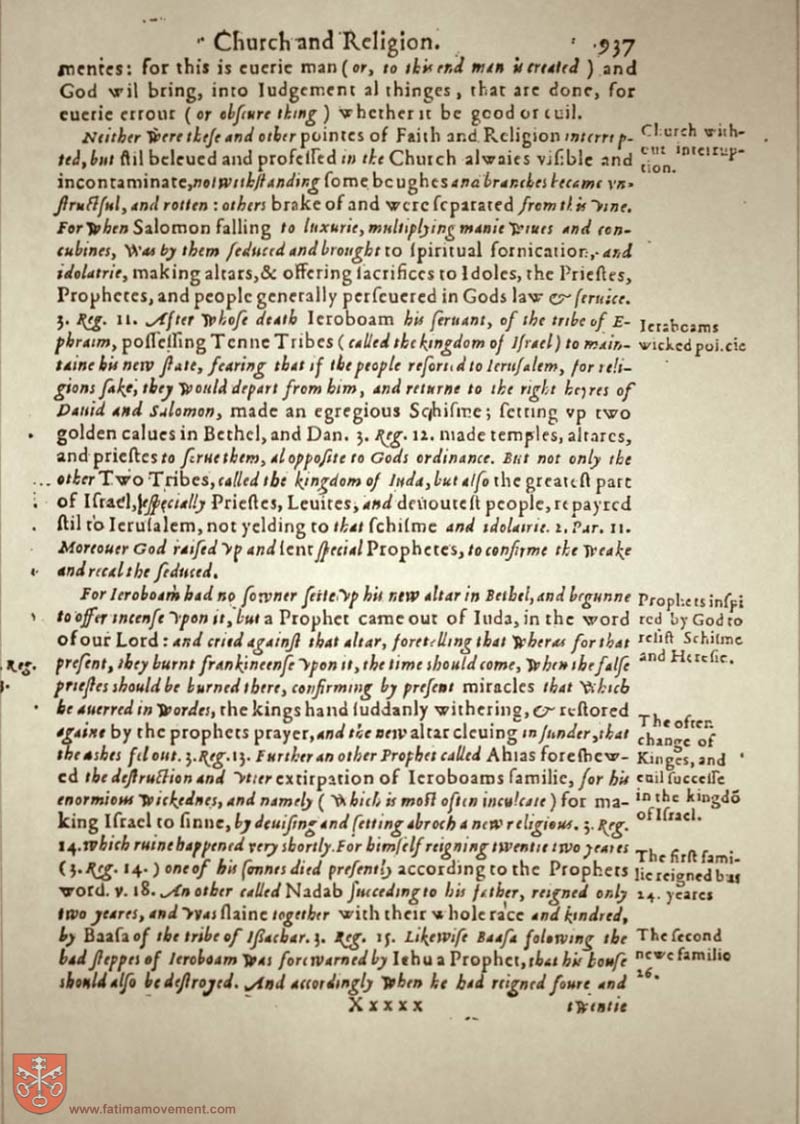 Church and Religion. 937
mentes: for this is euerie man (or, to this end man is created) and
God wil bring, into Iudgement al thinges, that are done, for
euerie errour (or obscure thing) whether it be good or euil.
Neither were these and other pointes of Faith and Religion interrup-
ted, but stil beleued and professed in the Church alwaies visible and
incontaminate, notwithstanding some boughes and branches became vn-
fructful, and rotten: others brake of and were separated from this vine.
For when Salomon falling to luxurie, multiplying manie wiues and con-
cubines, was by them seduced and brought to spiritual fornication, and
idolatrie, making altars, & offering sacrifices to Idoles, the Priestes,
Prophetes, and people generally perseuered in Gods law & seruice.
3. Reg. 11. After whose death Ieroboam his seruant, of the tribe of E-
phraim, possessing Tenne Tribes (called the kingdom of Israel) to main-
taine his new state, fearing that if the people resorted to Ierusalem, for reli-
gions sake, they would depart from him, and returne to the right heyres of
Dauid and Salomon, made an egregious Schisme; setting vp two
golden calues in Bethel, and Dan. 3. Reg. 12. made temples, altares,
and priestes to serue them, al opposite to Gods ordinance. But not only the
other Two Tribes, called the kingdom of Iuda, but also the greatest part
of Israel, especially Priestes, Leuites, and deuoutest people, repayred
stil to Ierusalem, not yelding to that schisme and idolatrie. 2. Par. 11.
Moreouer God raised vp and sent special Prophetes, to confirme the weake
and recal the seduced.
For Ieroboam had no sowner sette vp his new altar in Bethel, and begunne
to offer incense vpon it, but a Prophet came out of Iuda, in the word
of our Lord: and cried against that altar, foretelling that wheras for that
present, they burnt frankincense vpon it, the time should come, when the false
priestes should be burned there, confirming by present miracles that which
he auerred in wordes, the kings hand suddanly withering, & restored
againe by the prophets prayer, and the new altar cleuing in sunder, that
the ashes fel out. 3. Reg. 13. Further an other Prophet called Ahias foreshew-
ed the destruction and vtter extirpation of Ieroboams familie, for his
enormious wickednes, and namely (which is most often inculcate) for ma-
king Israel to sinne, by deuising and setting abroch a new religious. 3. Reg.
14. which ruine happened very shortly. For himself reigning twentie two yeares
(3. Reg. 14.) one of his sonnes died presently according to the Prophets
word. v. 18. An other called Nadab succeding to his father, reigned only
two yeares, and was slaine together with their whole race and kindred,
by Baasa of the tribe of Issachar. 3. Reg. 15. Likewise Baasa folowing the
bad steppes of Ieroboam was forewarned by Iehu a Prophet, that his house
should also be destroyed. And accordingly when he had reigned foure and
Xxxxx twentie
Church with-
out interrup-
tion.
Ieroboams
wicked policie
Prophets inspi
red by God to
resist Schisme
and Heresie.
The often
change of
Kinges, and
euil successe
in the kingdō
of Israel.
The first fami-
lie reigned but
24. yeares
The second
newe familie
26.
Reg.
www.fatimamovement.com